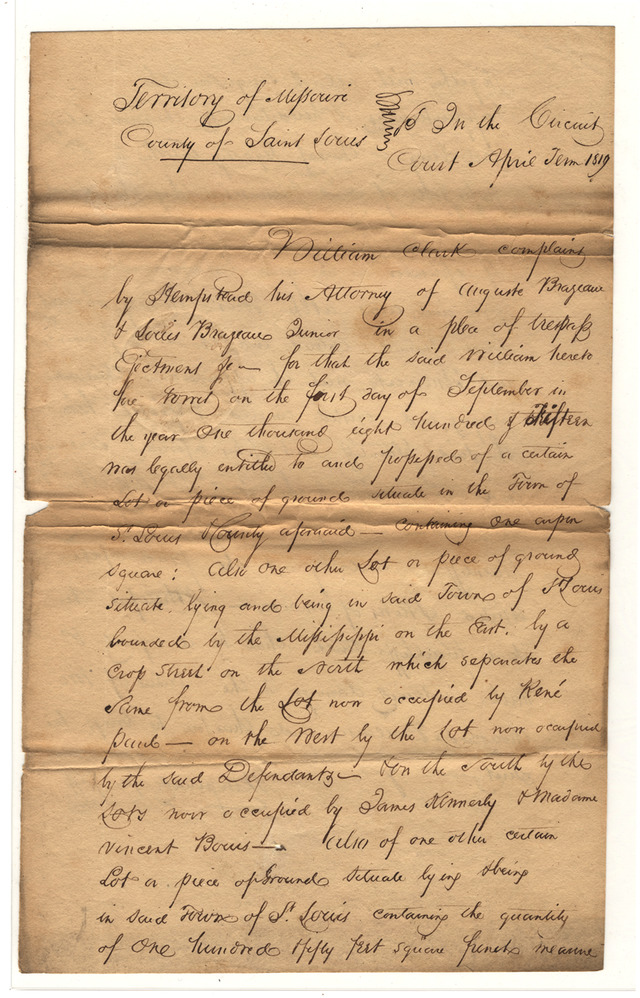 Territory of Missouri
County of Saint Louis
In the Circuit
Court April Term 1819
William Clark complains
by Hempstead his Attorney of Auguste Brazeau
& Louis Brazeau Junior in a plea of trespass
Ejectment &c— for that the said William hereto
fore towit on the first day of September in
the year One thousand eight hundred & fifteen
was legally entitled to and possessed of a certain
Lot or piece of ground situate in the Town of
St Louis & County aforesaid — containing one arpin
square: also one other Lot or piece of ground
situate lying and being in said Town of St Louis
bounded by the Mississippi on the East, by a
Cross Street on the North which separates the
same from the Lot now occupied by René
Paul — on the West by the Lot now occupied
by the said Defendants — On the South by the
Lots now occupied by James Kennerly & Madame
Vincent Bouis — Also of one other certain
Lot or piece of Ground situate lying & being
in said Town of St Louis containing the quantity
of One hundred & fifty feet square french measure